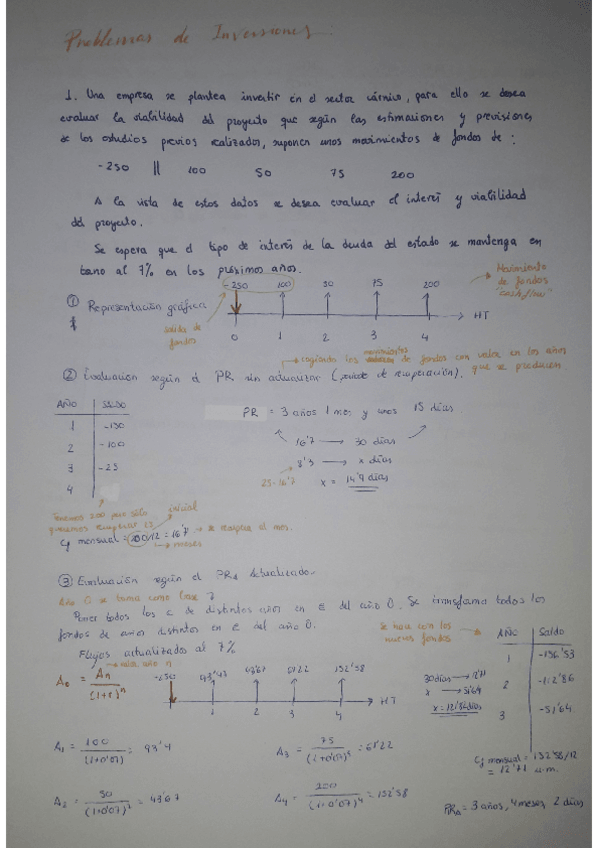 Problemas de Inversiones.
1. Una empresa se plantea invertir en el sector cárnico, para ello se desea
evaluar la viabilidad del proyecto que según las estimaciones y previsiones
de los estudios previos realizados, suponen unos movimientos de fondos de :
-250 || 100 50 75 200
A la vista de estos datos se desea evaluar el interés y viabilidad
del proyecto.
Se espera que el tipo de interés de la deuda del estado se mantenga en
torno al 7% en los próximos años.
① Representación gráfica
-250 100 50 75 200
HT
0 1 2 3 4
salida de
fondos
Movimiento
de fondos
"cash flow"
→ cogiendo los movimientos de fondos con valor en los años
que se producen
② Evaluación según el PR sin actualizar (periodo de recuperación).
AÑO SALDO
1 -150
2 -100
3 -25
4
PR = 3 años 1 mes y unos 15 días.
16'7 → 30 días
8'3 → x días
25-16'7
x = 14'9 días
Tenemos 200 pero sólo
queremos recuperar 25
inicial
Cj mensual = 200/12 = 16'7 → se recupera el mes.
→ meses
③ Evaluación según el PRA Actualizado.
Año 0 se toma como base
Poner todos los € de distintos años en € del año 0. Se transforma todos los
fondos de años distintos en € del año 0.
Flujos actualizados al 7%
→ valor año n
A₀ = An/(1+r)ⁿ
-250 93'43 43'67 61'22 152'58
HT
1 2 3 4
Se hace con los
nuevos fondos
AÑO Saldo
1 -156'53
2 -112'86
3 -51'64
30 días → 12'71
x → 51'64
x = 121'86 días
A₁ = 100/(1+0'07) = 93'4
A₃ = 75/(1+0'07)³ = 61'22
Cj mensual = 152'58/12
= 12'71 u.m.
A₂ = 50/(1+0'07)² = 43'67
A₄ = 200/(1+0'07)⁴ = 152'58
PRA = 3 años, 4 meses, 2 días